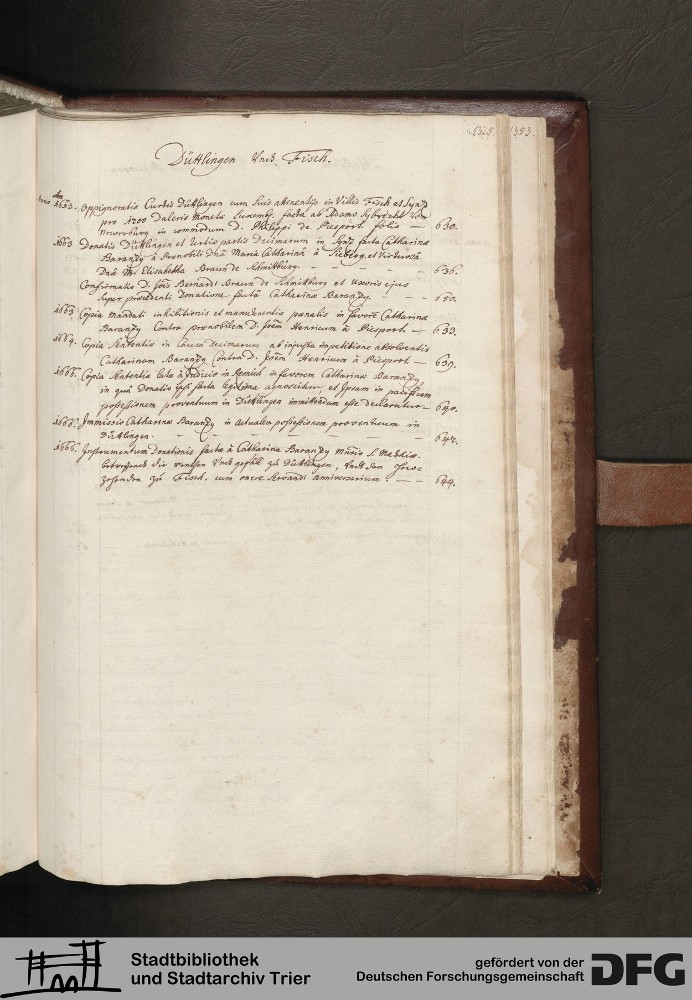 1325. 1353.
Düttlingen Und Fisch.
Anno 1653. Oppignoratio Curtis Düttlingen cum suis attinentijs in Villis Fisch et
pro 1200 Daleris Moneta Luxemb. facta ab Adamo
in commodum D. Philippi de Piesport. folio — 630.
1663 Donatio Düttlingen et tertia partis Decimarum in facta Catharina
Baranzy à Prænobili Dna Maria Catharina à et Virtuosa
Dna M. Elisabetha Braun de Schmitburg. - - - 636.
Confirmatio D. Jois Bernardi Braun de Schmitburg et Uxoris ejus
super præcedenti Donatione facta Catharina Baranzy. - - 150.
1663. Copia Mandati inhibitionis et manutentiæ pœnalis in favore Catharina
Baranzy Contra prænobilem D. Joem Henricum à Piesport. — 633.
1664. Copia Sententia in Causa Decimarum ab injusta impetitione absolventis
Catharinam Baranzy Contra D. Joem Henricum à Piesport — 639.
1666. Copia Sententia lata à Judicio in Remich in favorem Catharina Baranzy,
in qua Donatio ipsi facta legitima agnoscitur, et Ipsam in pacificam
possessionem proventuum in Düttlingen immittendam esse declaratur — 640.
1666. Immissio Catharina Baranzy in actualem possessionem proventuum in
Düttlingen. - - - - - 642.
1666. Instrumentum Donationis facta à Catharina Baranzy S.
betreffendt die renthen Undt gefäll zu Düttlingen, Undt den
zehenden zu Fisch. cum onere servandi anniversarium. — 644.
Stadtbibliothek
und Stadtarchiv Trier
gefördert von der
Deutschen Forschungsgemeinschaft
DFG